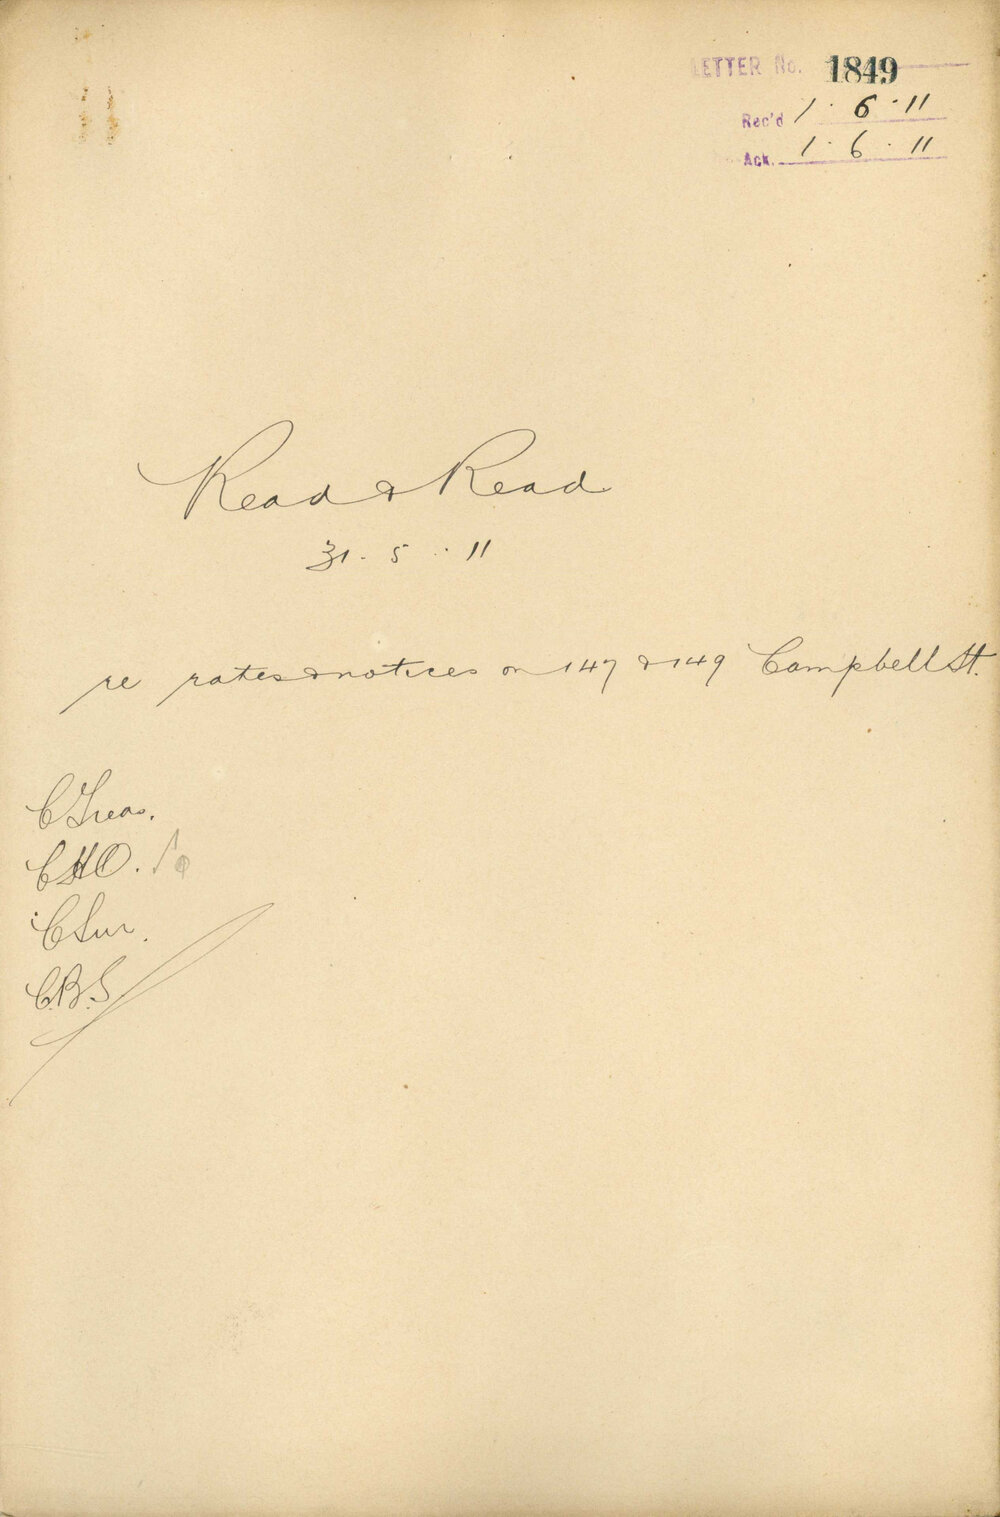 LETTER No. 1849
Rec'd 1 . 6 . 11
Ack. 1 . 6 . 11
Read & Read
31 . 5 . 11
re rates & notices on 147 & 149 Campbell St.
C Treas.
CHO.
C Sur.
C.B.S